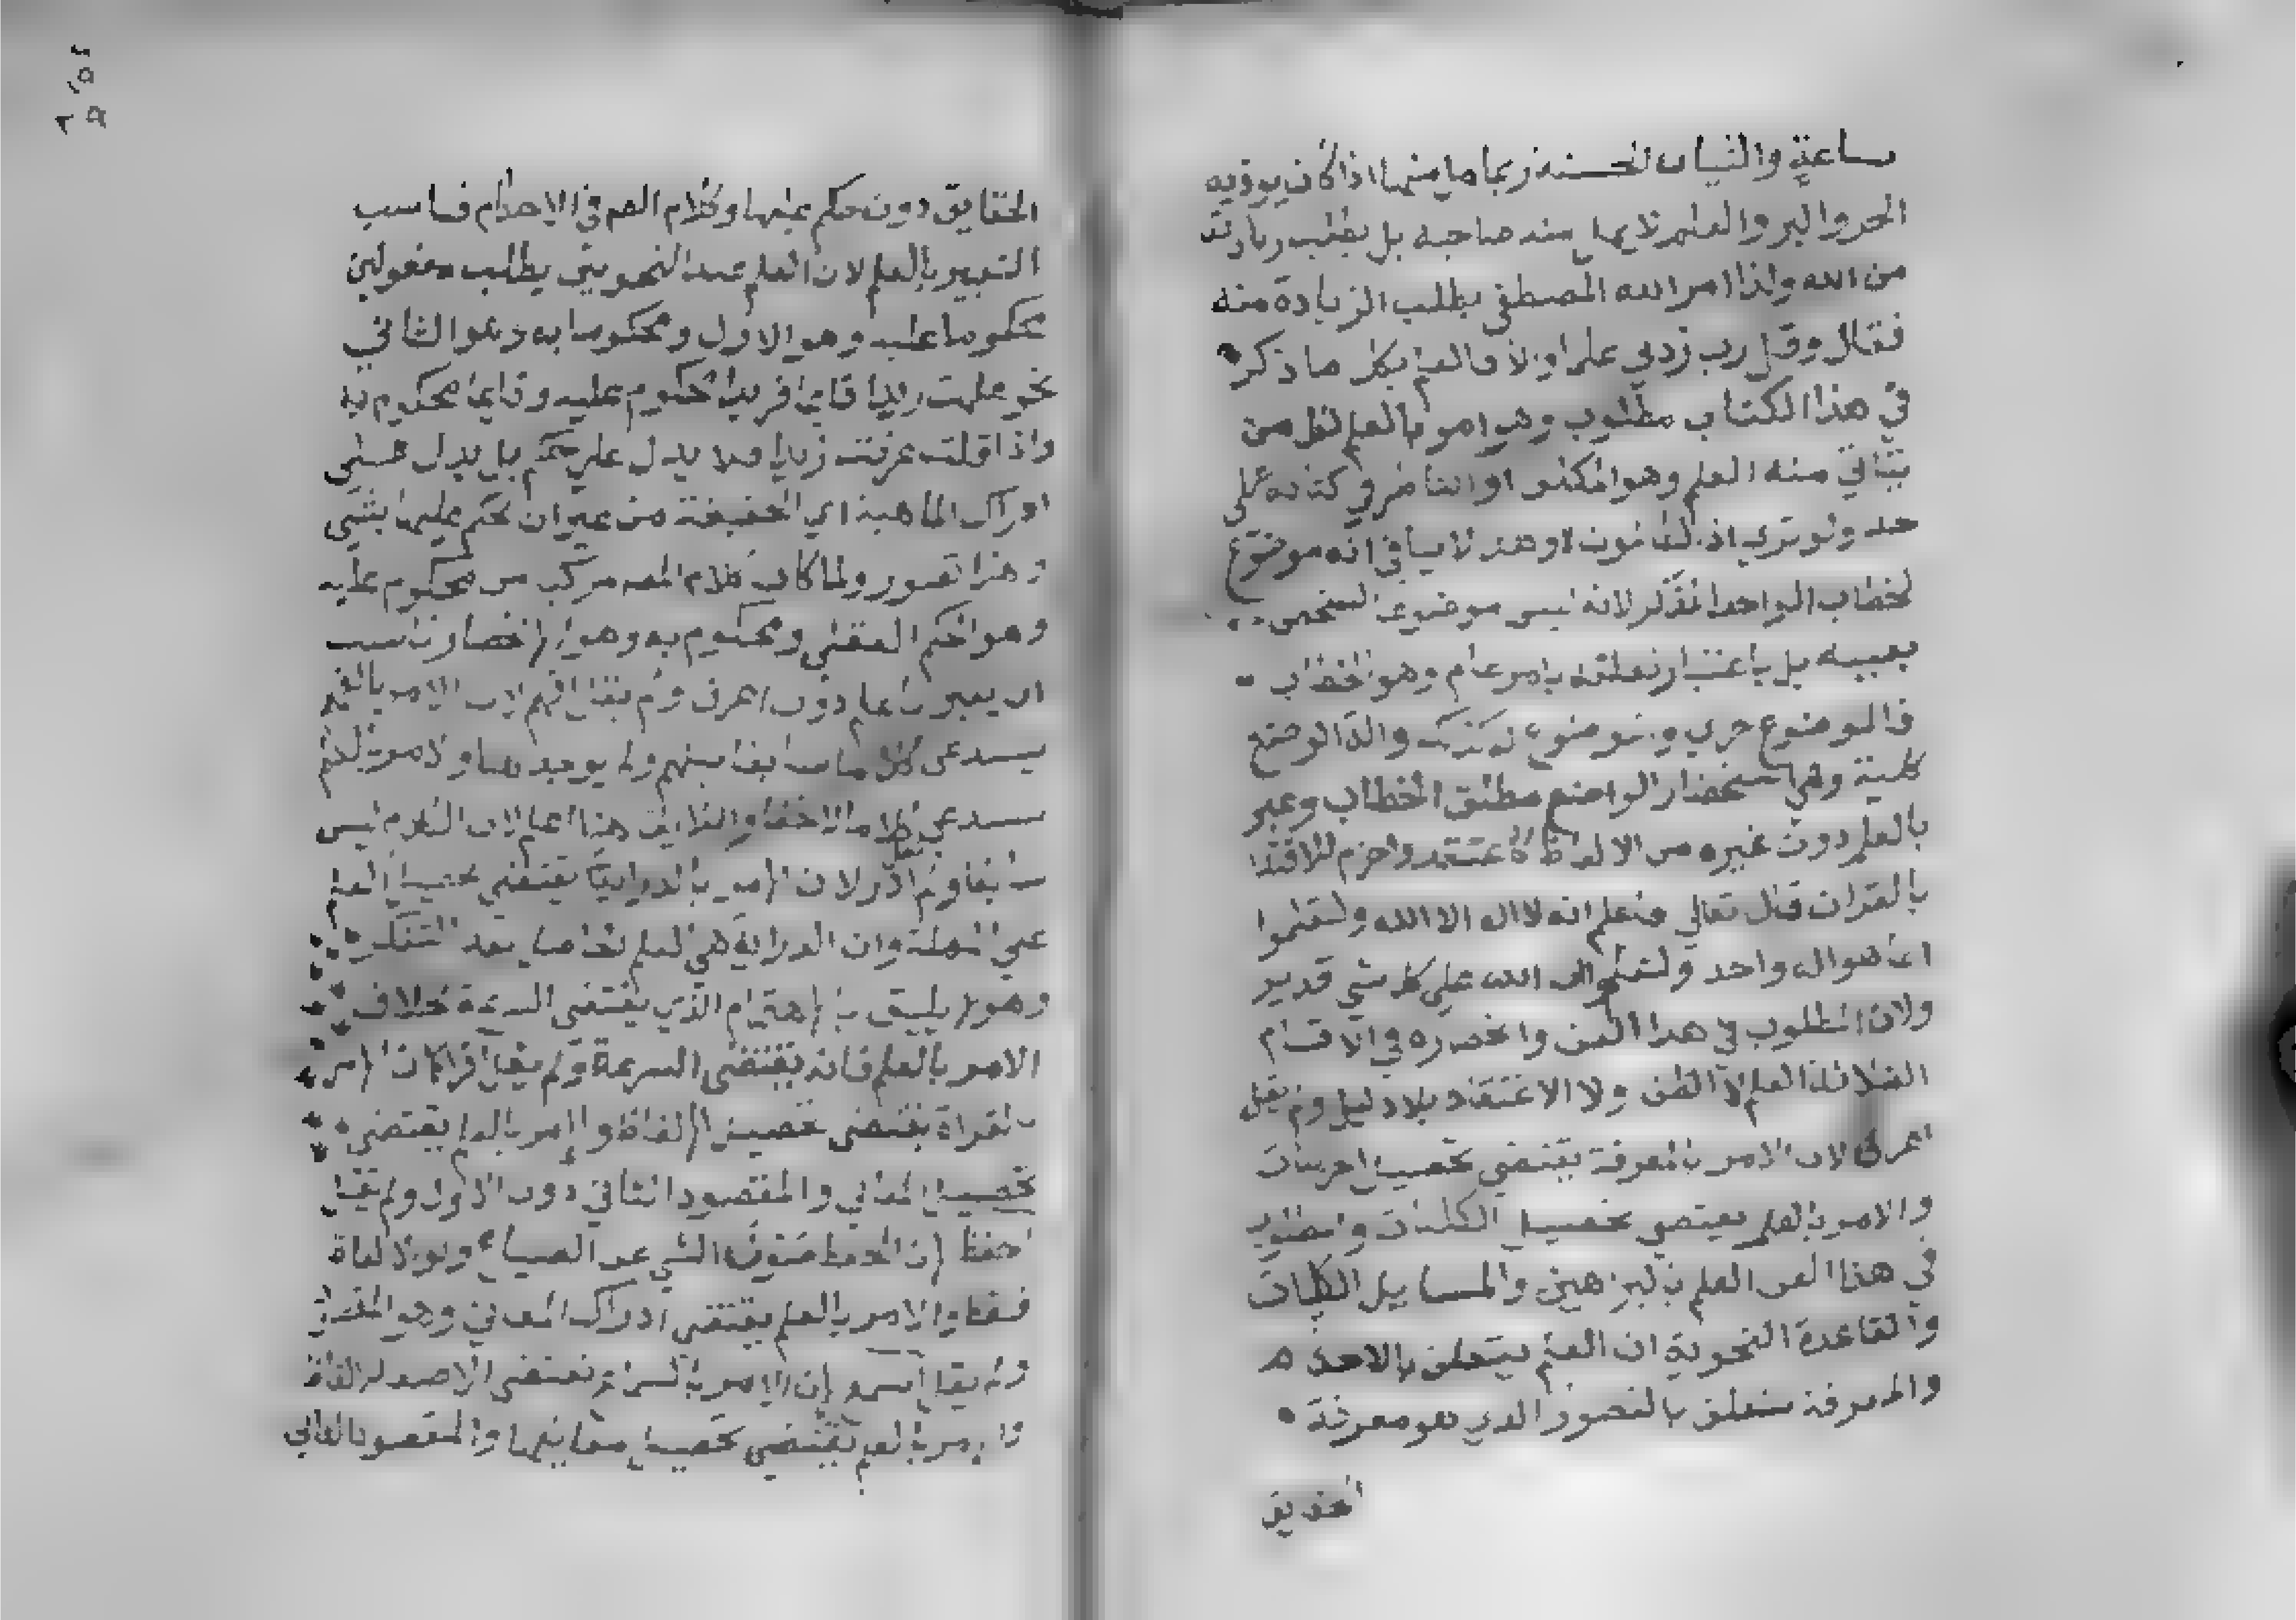 ساعة والثياب الحسنة ربما مل منها اذا كان يوذيه
الحر والبر والعلم لا يمل منه صاحبه بل يطلب زيادته
من الله ولذا امر الله المصطفى بطلب الزيادة منه
فقال وقل رب زدني علما اولا فالعلم بكل ما ذكر
في هذا الكتاب مطلوب وهو امر بالعلم لكل من
يتاتي منه العلم وهو المكلف او الناظر في كتابه على
حد ولو ترى اذ وهذا لا ينافي انه موضوع
لخطاب الواحد المذكر لانه ليس موضوعا لشخص
بعينه بل باعتبار تعلقه بامر عام وهو الخطاب
فالموضوع جزي والموضوع له كذلك والة الوضع
كلية وهي استحضار الواضع مطلق الخطاب وعبر
بالعلم دون غيره من الالفاظ كاعتقد واجزم للاقتدا
بالقران قال تعالى فاعلم انه لا اله الا الله وليعلموا
انما هو اله واحد ولتعلموا ان الله على كل شي قدير
ولان المطلوب في هذا الفن وانحصاره في الاقسام
الثلاثة العلم لا الظن ولا الاعتقاد بلا دليل ولم يقل
اعرف لان الامر بالمعرفة يقتضي تحصيل الجزييات
والامر بالعلم يقتضي تحصيل الكليات والمطلوب
في هذا الفن العلم بالبراهين والمسايل الكليات
والقاعدة النحوية ان العلم يتعلق بالاحكام
والمعرفة تتعلق بالتصور الذي هو معرفة
الحقايق
الحقايق دون حكم عليها وكلام المص في الاحكام فناسب
التعبير بالعلم لان العلم عند النحويين يطلب مفعولين
محكوما عليه وهو الاول ومحكوما به وهو الثاني
نحو علمت زيدا قايما فزيدا محكوم عليه وقايما محكوم به
واذا قلت عرفت زيدا فلا يدل على حكم بل يدل على
ادراك الماهية اي الحقيقة من غير ان تحكم عليها بشي
وهذا تصور ولما كان كلام المص مركب من محكوم عليه
وهو الحكم العقلي ومحكوم به وهو الانحصار ناسب
ان يعبر باعلم دون اعرف ولم يقل افهم لان الامر بالفهم
يستدعي كلاما سابقا يفهم ولم يوجد هنا والامر بالعلم
يستدعي كلاما لاحقا واللايق هنا اعلم لان الكلام ليس
سابقا ولم ادر لان الامر بالدراية يقتضي تحصيل العلم
على المهلة وان الدراية هي العلم الحاصل بعد التفكر
وهو لا يليق بالاهتمام الذي يقتضي السرعة بخلاف
الامر بالعلم فانه يقتضي السرعة ولم يقل اقرا لان الامر
بالقراة يقتضي تحصيل الالفاظ والامر بالعلم يقتضي
تحصيل المعاني والمقصود الثاني دون الاول ولم يقل
احفظ لان الحفظ صون الشي عن الضياع ولو لالفاظ
فقط والامر بالعلم يقتضي ادراك المعاني وهو المقصود
ولم يقل لان الامر يقتضي الالفاظ
والامر بالعلم يقتضي تحصيل معانيها والمقصود المعاني